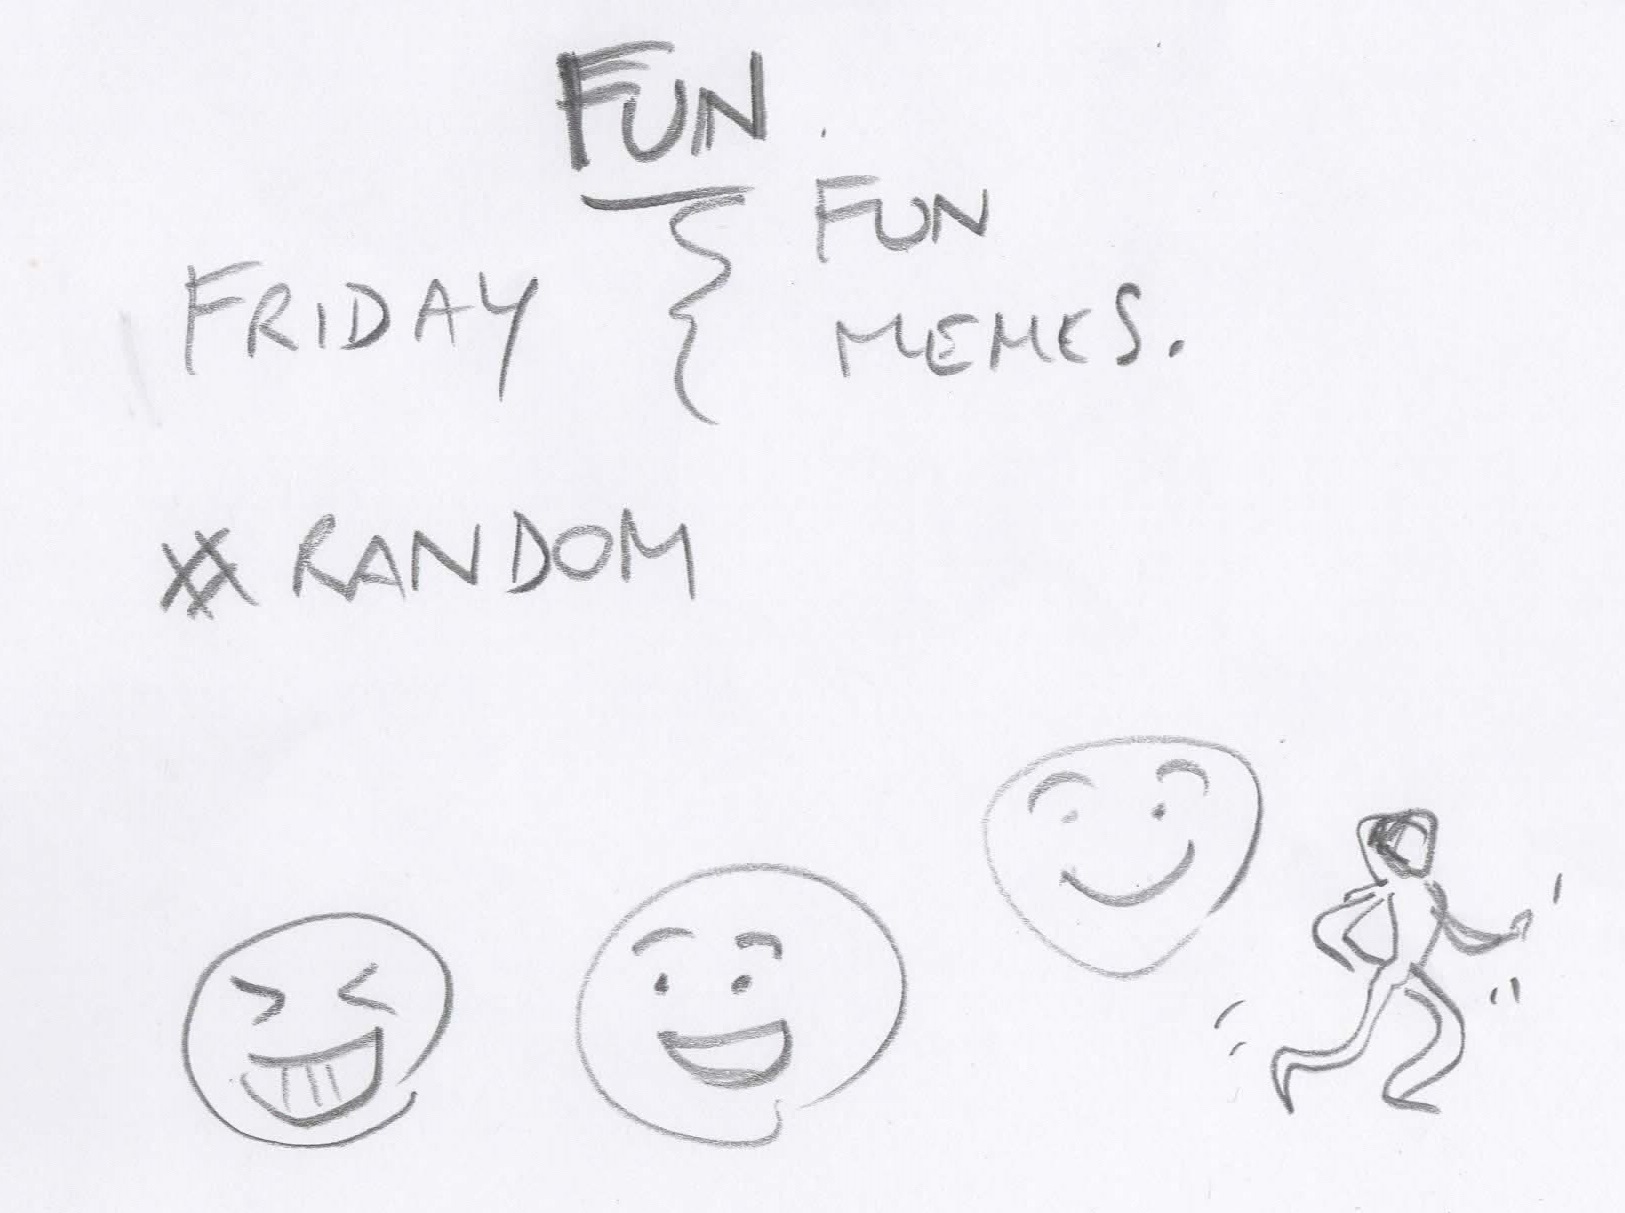 FUN
FRIDAY { FUN
MEMES.
# RANDOM